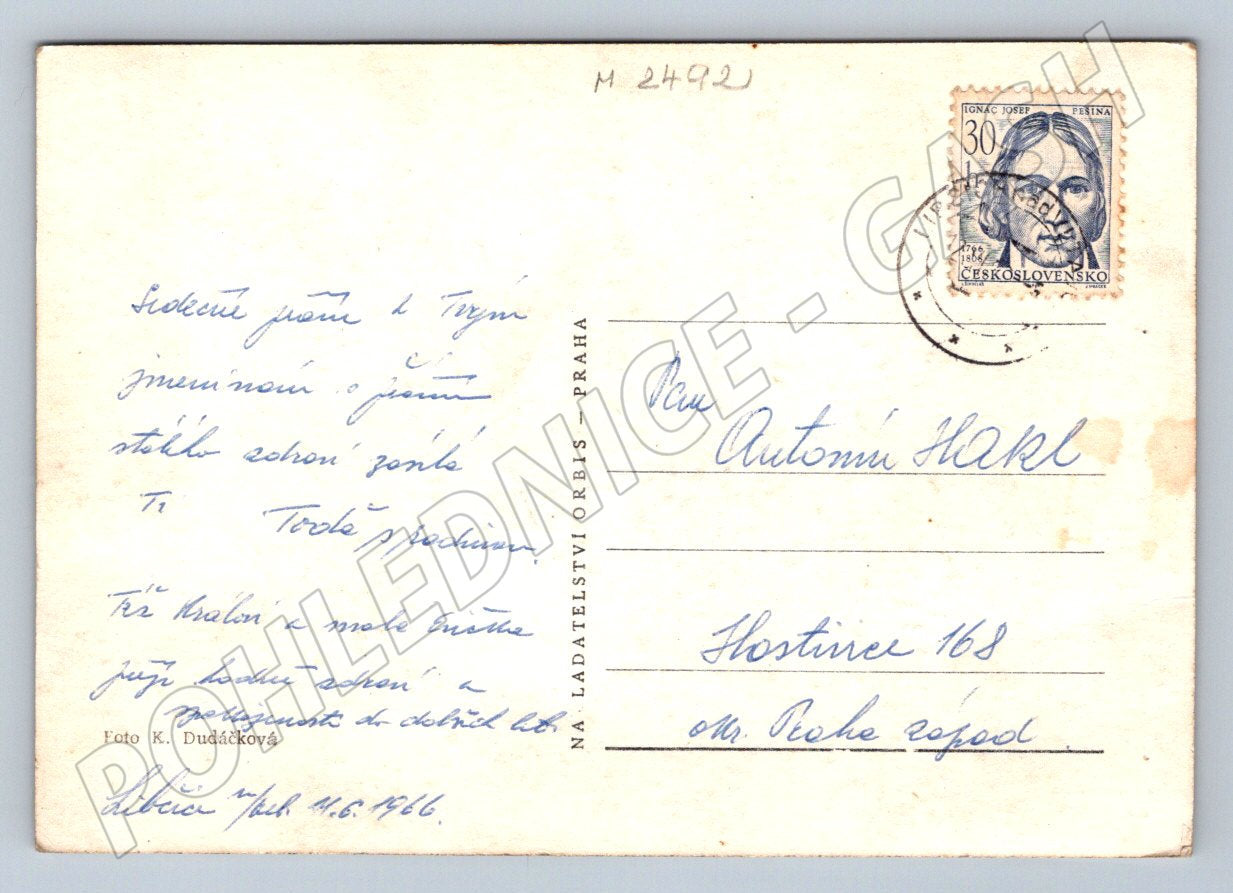 M 2492
IGNÁC JOSEF PEŠINA
30
1766
1808
ČESKOSLOVENSKO
Srdečné přání k Tvým
jmeninám s přáním
stálého zdraví zasílá
Ti
Toďa s rodinou.
Též Královi a malá
přeji hodně zdraví a
spokojenosti do dalších let.
Foto K. Dudáčková
11.6.1966.
NAKLADATELSTVÍ ORBIS – PRAHA
Pan
Antonín Hakl
Hostivice 168
okr. Praha západ.
POHLEDNICE - GASH